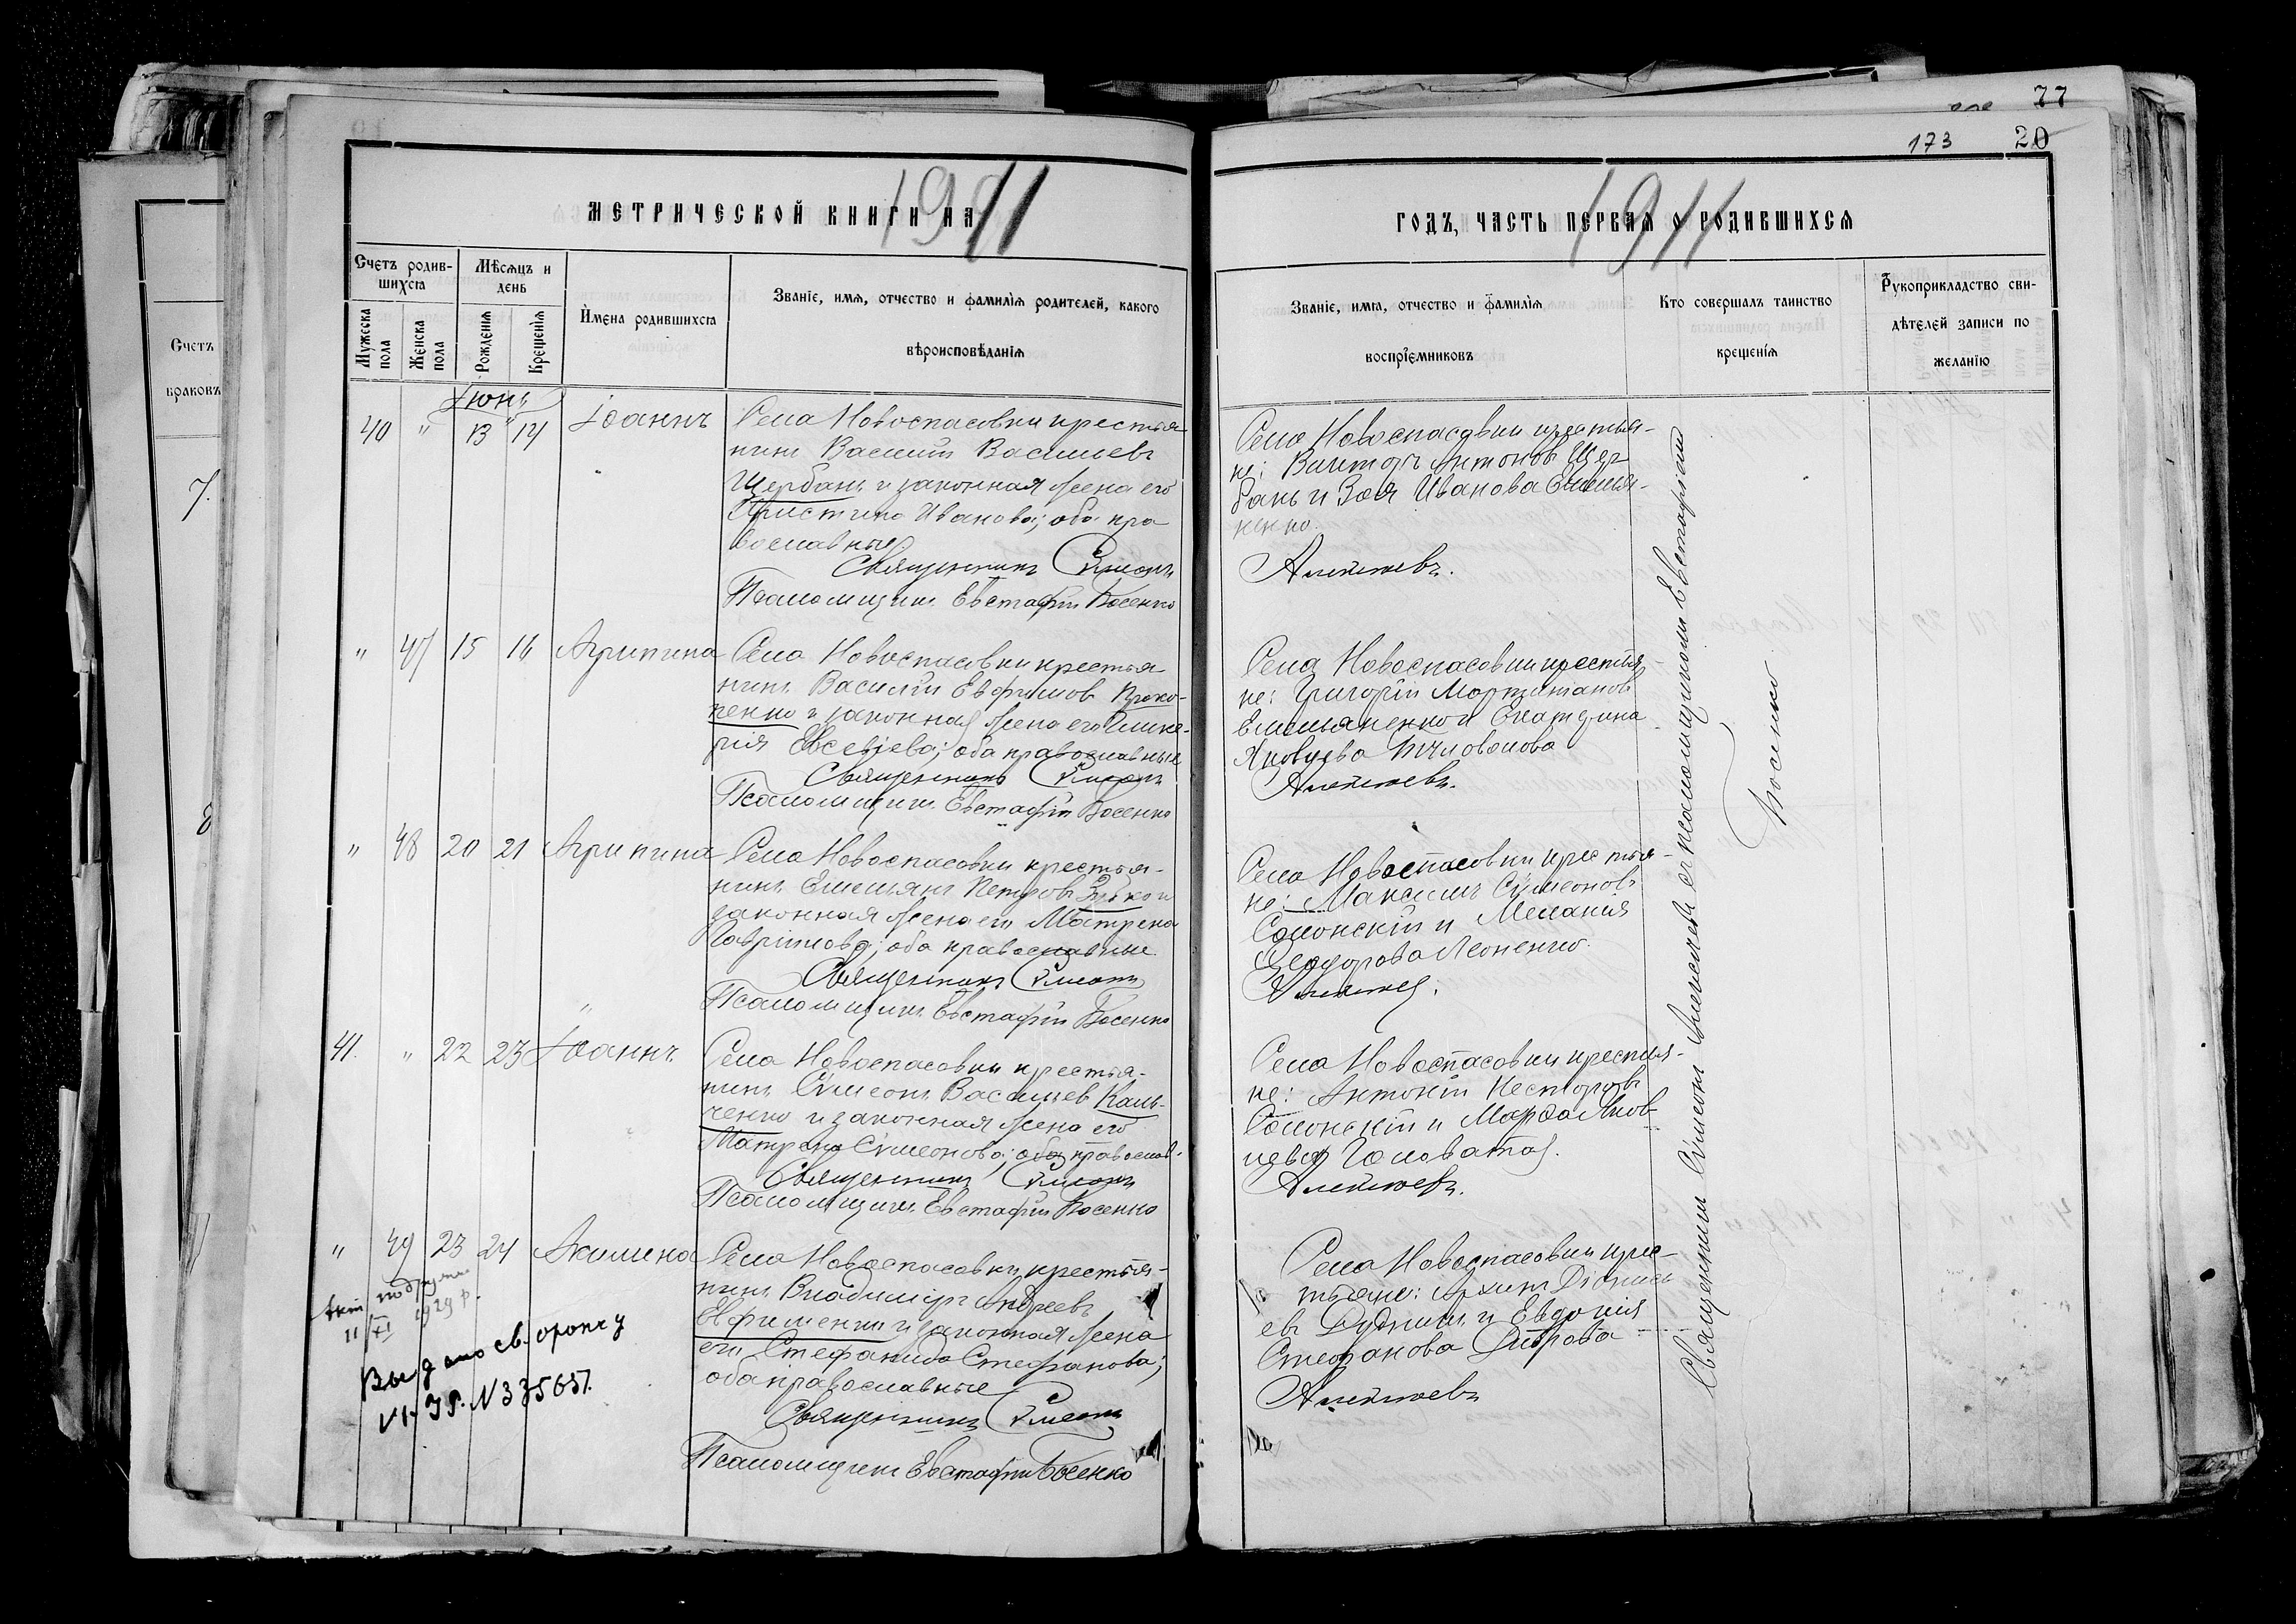 77
173 20
МЕТРИЧЕСКОЙ КНИГИ НА 1911
ГОДЪ, ЧАСТЬ ПЕРВАЯ О РОДИВШИХСЯ
1911
Счетъ родив-
шихся
Мужеска пола
Женска пола
Мѣсяцъ и
день
Рожденія
Крещенія
Имена родившихся
Званіе, имя, отчество и фамилія родителей, какого
вѣроисповѣданія
Званіе, имя, отчество и фамилія
воспріемниковъ
Кто совершалъ таинство
крещенія
Рукоприкладство сви-
дѣтелей записи по
желанію
Счетъ
браковъ
7.
Іюнь
40 " 13 14 Іоаннъ
Села Новоспасовки крестья
нинъ Василій Васильевъ
Щербань и законная жена его
Христина Иванова; оба пра
вославные
Священникъ Симеонъ
Псаломщикъ Евстафій Косенко
Села Новоспасовки крестья-
не: Викторъ Антоновъ Щер
бань и Зоя Иванова Емелья-
ненко.
Алексѣевъ.
" 47 15 16 Агрипина
Села Новоспасовки крестья
нинъ Василій Евфимовъ Проко-
пенко и законная жена его Глике-
рія Евсевіева; оба православные
Священникъ Симеонъ
Псаломщикъ Евстафій Косенко
Села Новоспасовки крестья-
не: Григорій
Емельяненко и Екатерина
Яковлева
Алексѣевъ.
" 48 20 21 Агрипина
Села Новоспасовки крестья-
нинъ Емельянъ Петровъ Зубко и
законная жена его Матрена
Гавріилова; оба православные.
Священникъ Симеонъ
Псаломщикъ Евстафій Косенко
Села Новоспасовки крестья-
не: Максимъ Симеоновъ
Солонскій и Меланія
Ѳеодорова Леоненко.
Алексѣевъ.
41. " 22 23 Іоаннъ
Села Новоспасовки крестья-
нинъ Симеонъ Васильев Каль-
ченко и законная жена его
Матрена Симеонова; оба православ.
Священникъ Симеонъ
Псаломщикъ Евстафій Косенко
Села Новоспасовки крестья-
не: Антоній Несторовъ
Солонскій и Марѳа Яков-
лева Головатая.
Алексѣевъ.
" 49 23 24 Акилина
Села Новоспасовки крестья-
нинъ Владиміръ Андреевъ
Евфименко и законная жена
его Стефанида Стефанова;
оба православные
Священникъ Симеонъ
Псаломщикъ Евстафій Косенко
Села Новоспасовки крес-
тьяне: Архипъ Діонисі
евъ Дудникъ и Евдокія
Стефанова
Алексѣевъ
11/XI 1929 р.
Выдано св.
N335651.
Священникъ Симеонъ Алексѣевъ съ псаломщикомъ Евстафіемъ
Косенко